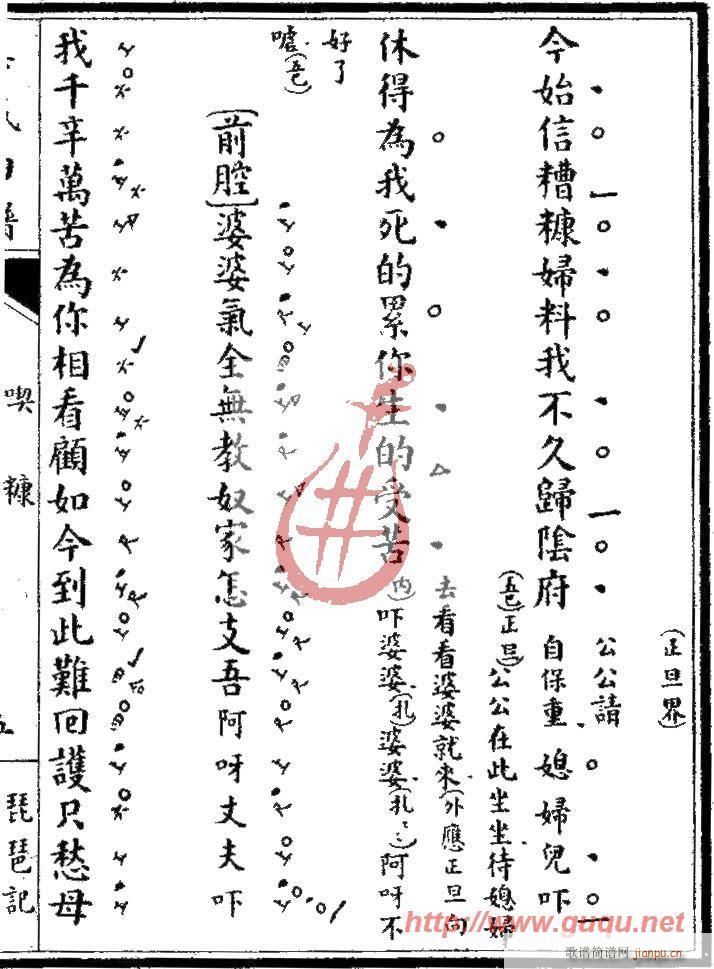 （正旦界）
公公請
今始信糟糠婦料我不久歸陰府 自保重 媳婦兒吓
公公在此坐坐待媳婦
去看看婆婆就來（外應正旦向
休得為我死的累你生的受苦（内）吓婆婆（扎）婆婆（扎）阿呀不
好了
嘘
（前腔）婆婆氣全無教奴家怎支吾阿呀丈夫吓
我千辛萬苦為你相看顧如今到此難回護只愁母
喫糠
琵琶記
http://www.guqu.net
歌谱简谱网
jianpu.cn